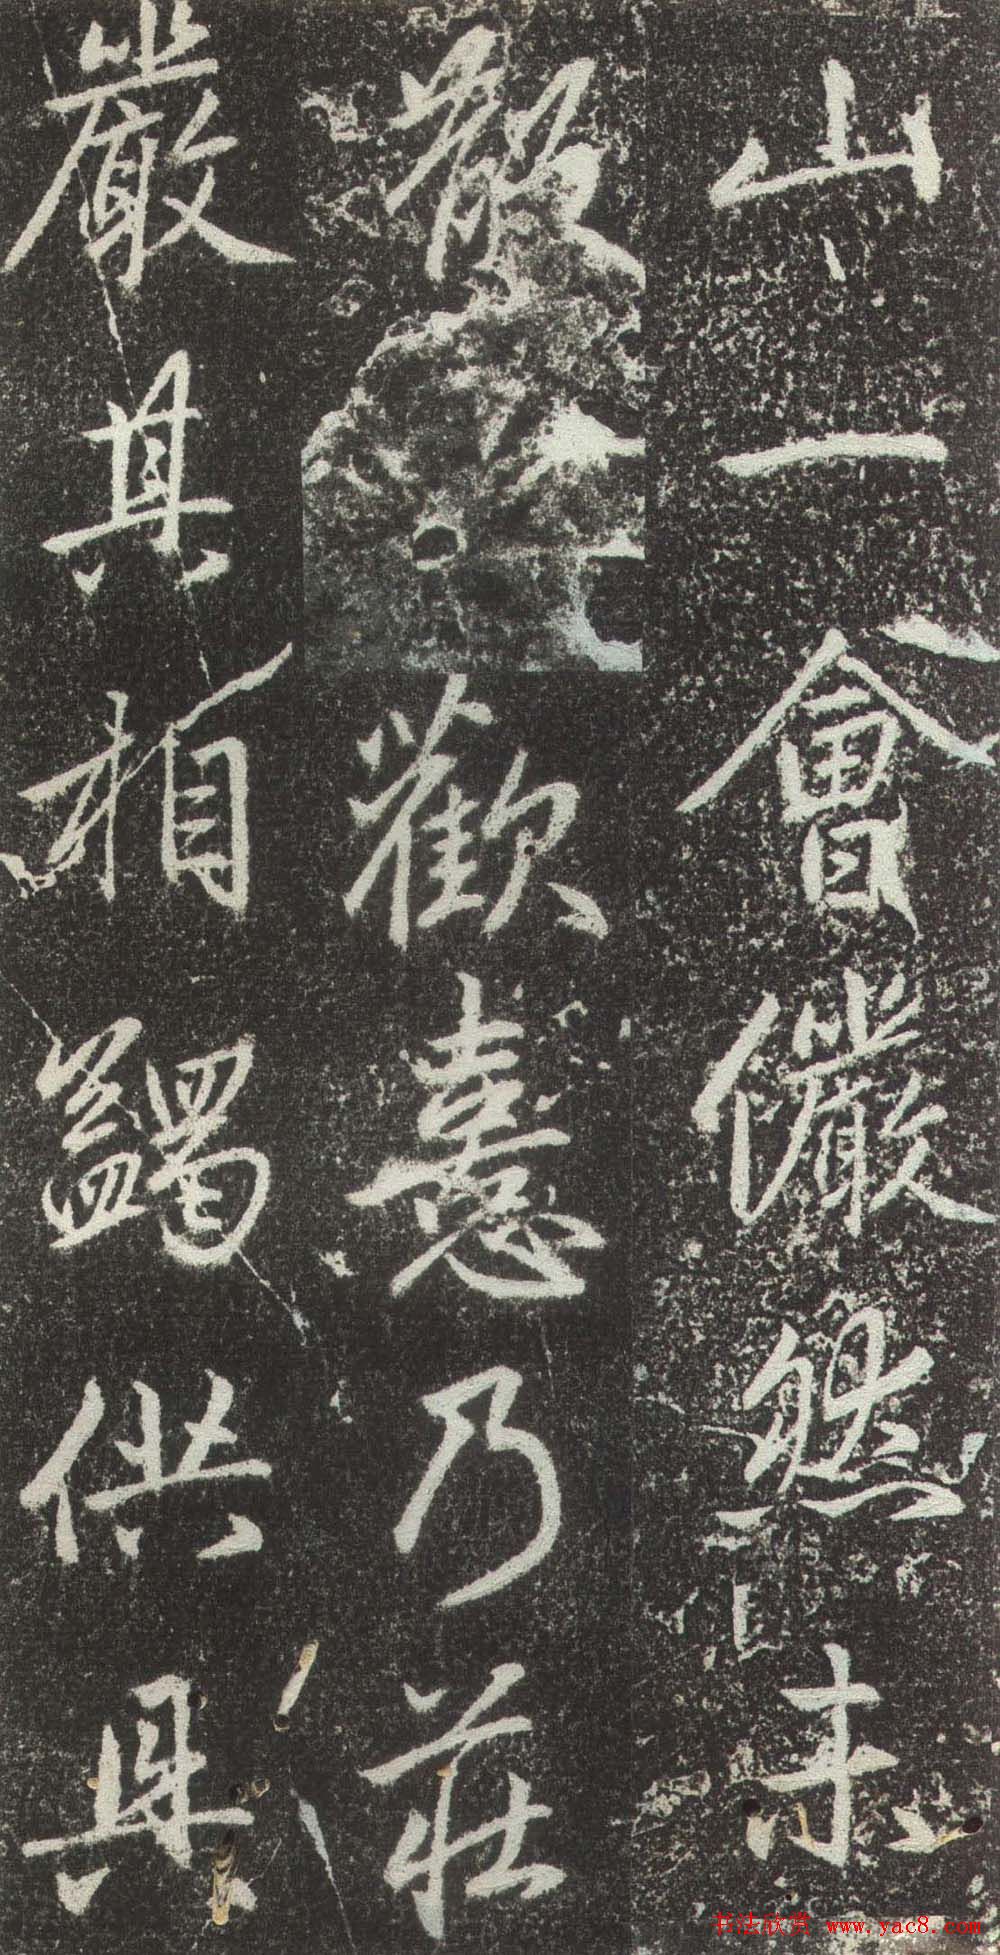 山一會儼然未
散歡憙乃莊
嚴其相蠲供具
书法欣赏 www.yac8.com